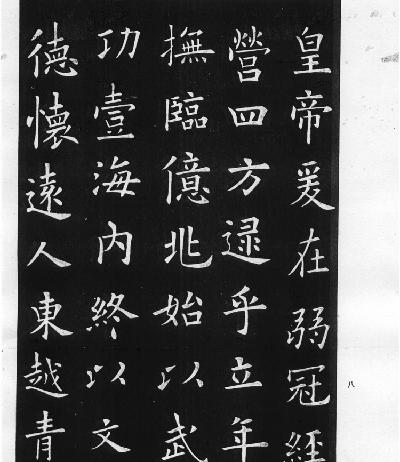 皇帝爰在弱冠經
營四方逯乎立年
撫臨億兆始以武
功壹海内終以文
德懷遠人東越青
八